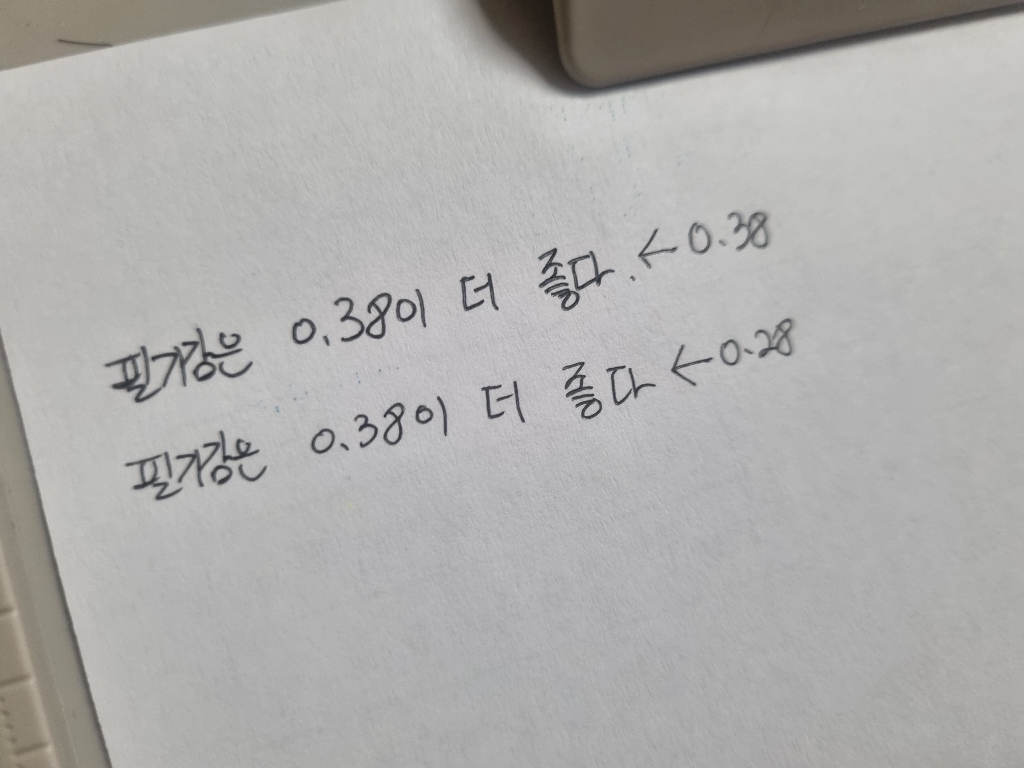 필기감은 0.38이 더 좋다. ← 0.38
필기감은 0.38이 더 좋다 ← 0.28